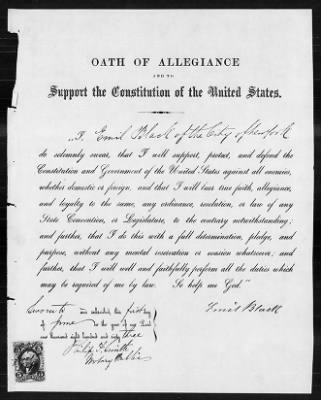 OATH OF ALLEGIANCE
AND TO
Support the Constitution of the United States.
"I, Emil Black of the City of New York
do solemnly swear, that I will support, protect, and defend the
Constitution and Government of the United States against all enemies,
whether domestic or foreign, and that I will bear true faith, allegiance,
and loyalty to the same, any ordinance, resolution, or law of any
State Convention, or Legislature, to the contrary notwithstanding;
and further, that I do this with a full determination, pledge, and
purpose, without any mental reservation or evasion whatsoever; and
further, that I will well and faithfully perform all the duties which
may be required of me by law. So help me God."
Emil Black
Sworn to and subscribed, this first day
of June in the year of our Lord
one thousand eight hundred and sixty three
Philip J. Smith
Notary Public